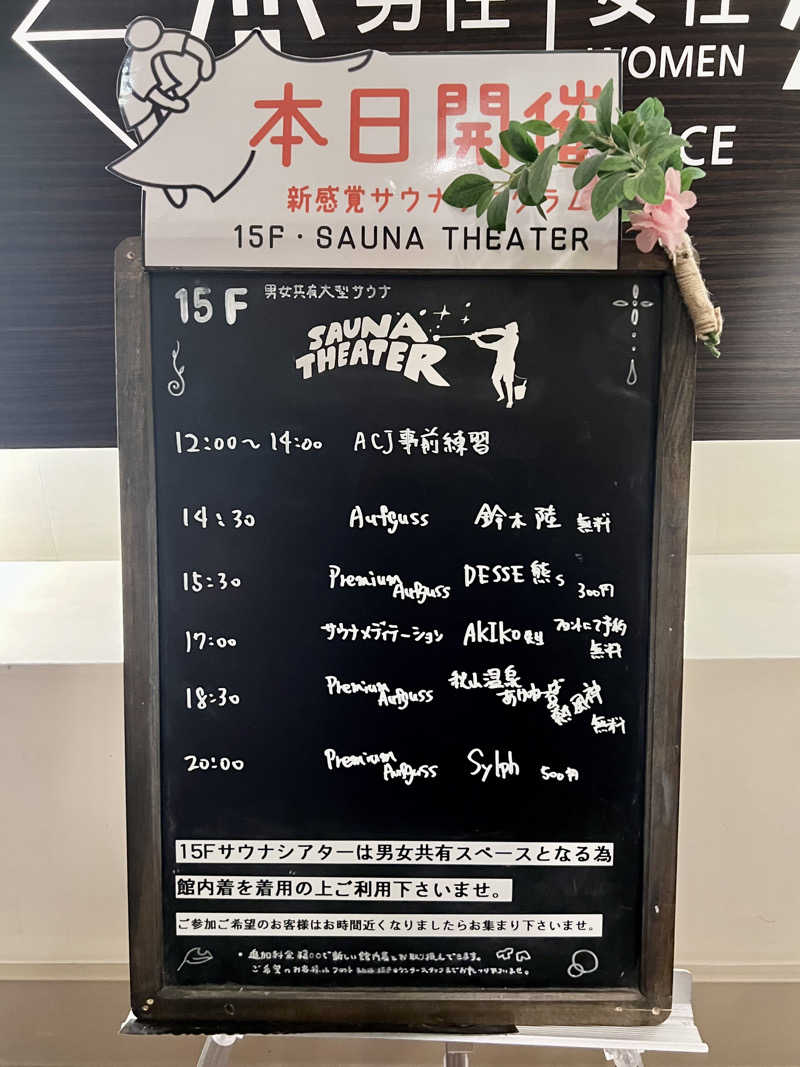 男性 女性
WOMEN
本日開催
新感覚サウナ
15F・SAUNA THEATER
15F 男女共有大型サウナ
SAUNA
THEATER
12:00~14:00 ACJ事前練習
14:30 Aufguss 鈴木陸 無料
15:30 Premium Aufguss DESSE熊s 300円
17:00 サウナメディテーション AKIKO フロントにて予約 無料
18:30 Premium Aufguss 秋山温泉 熱風 無料
20:00 Premium Aufguss Sylph 500円
15Fサウナシアターは男女共有スペースとなる為
館内着を着用の上ご利用下さいませ。
ご参加ご希望のお客様はお時間近くなりましたらお集まり下さいませ。
・追加料金 で新しい館内着とお取り換えできます。
ご希望のお客様は